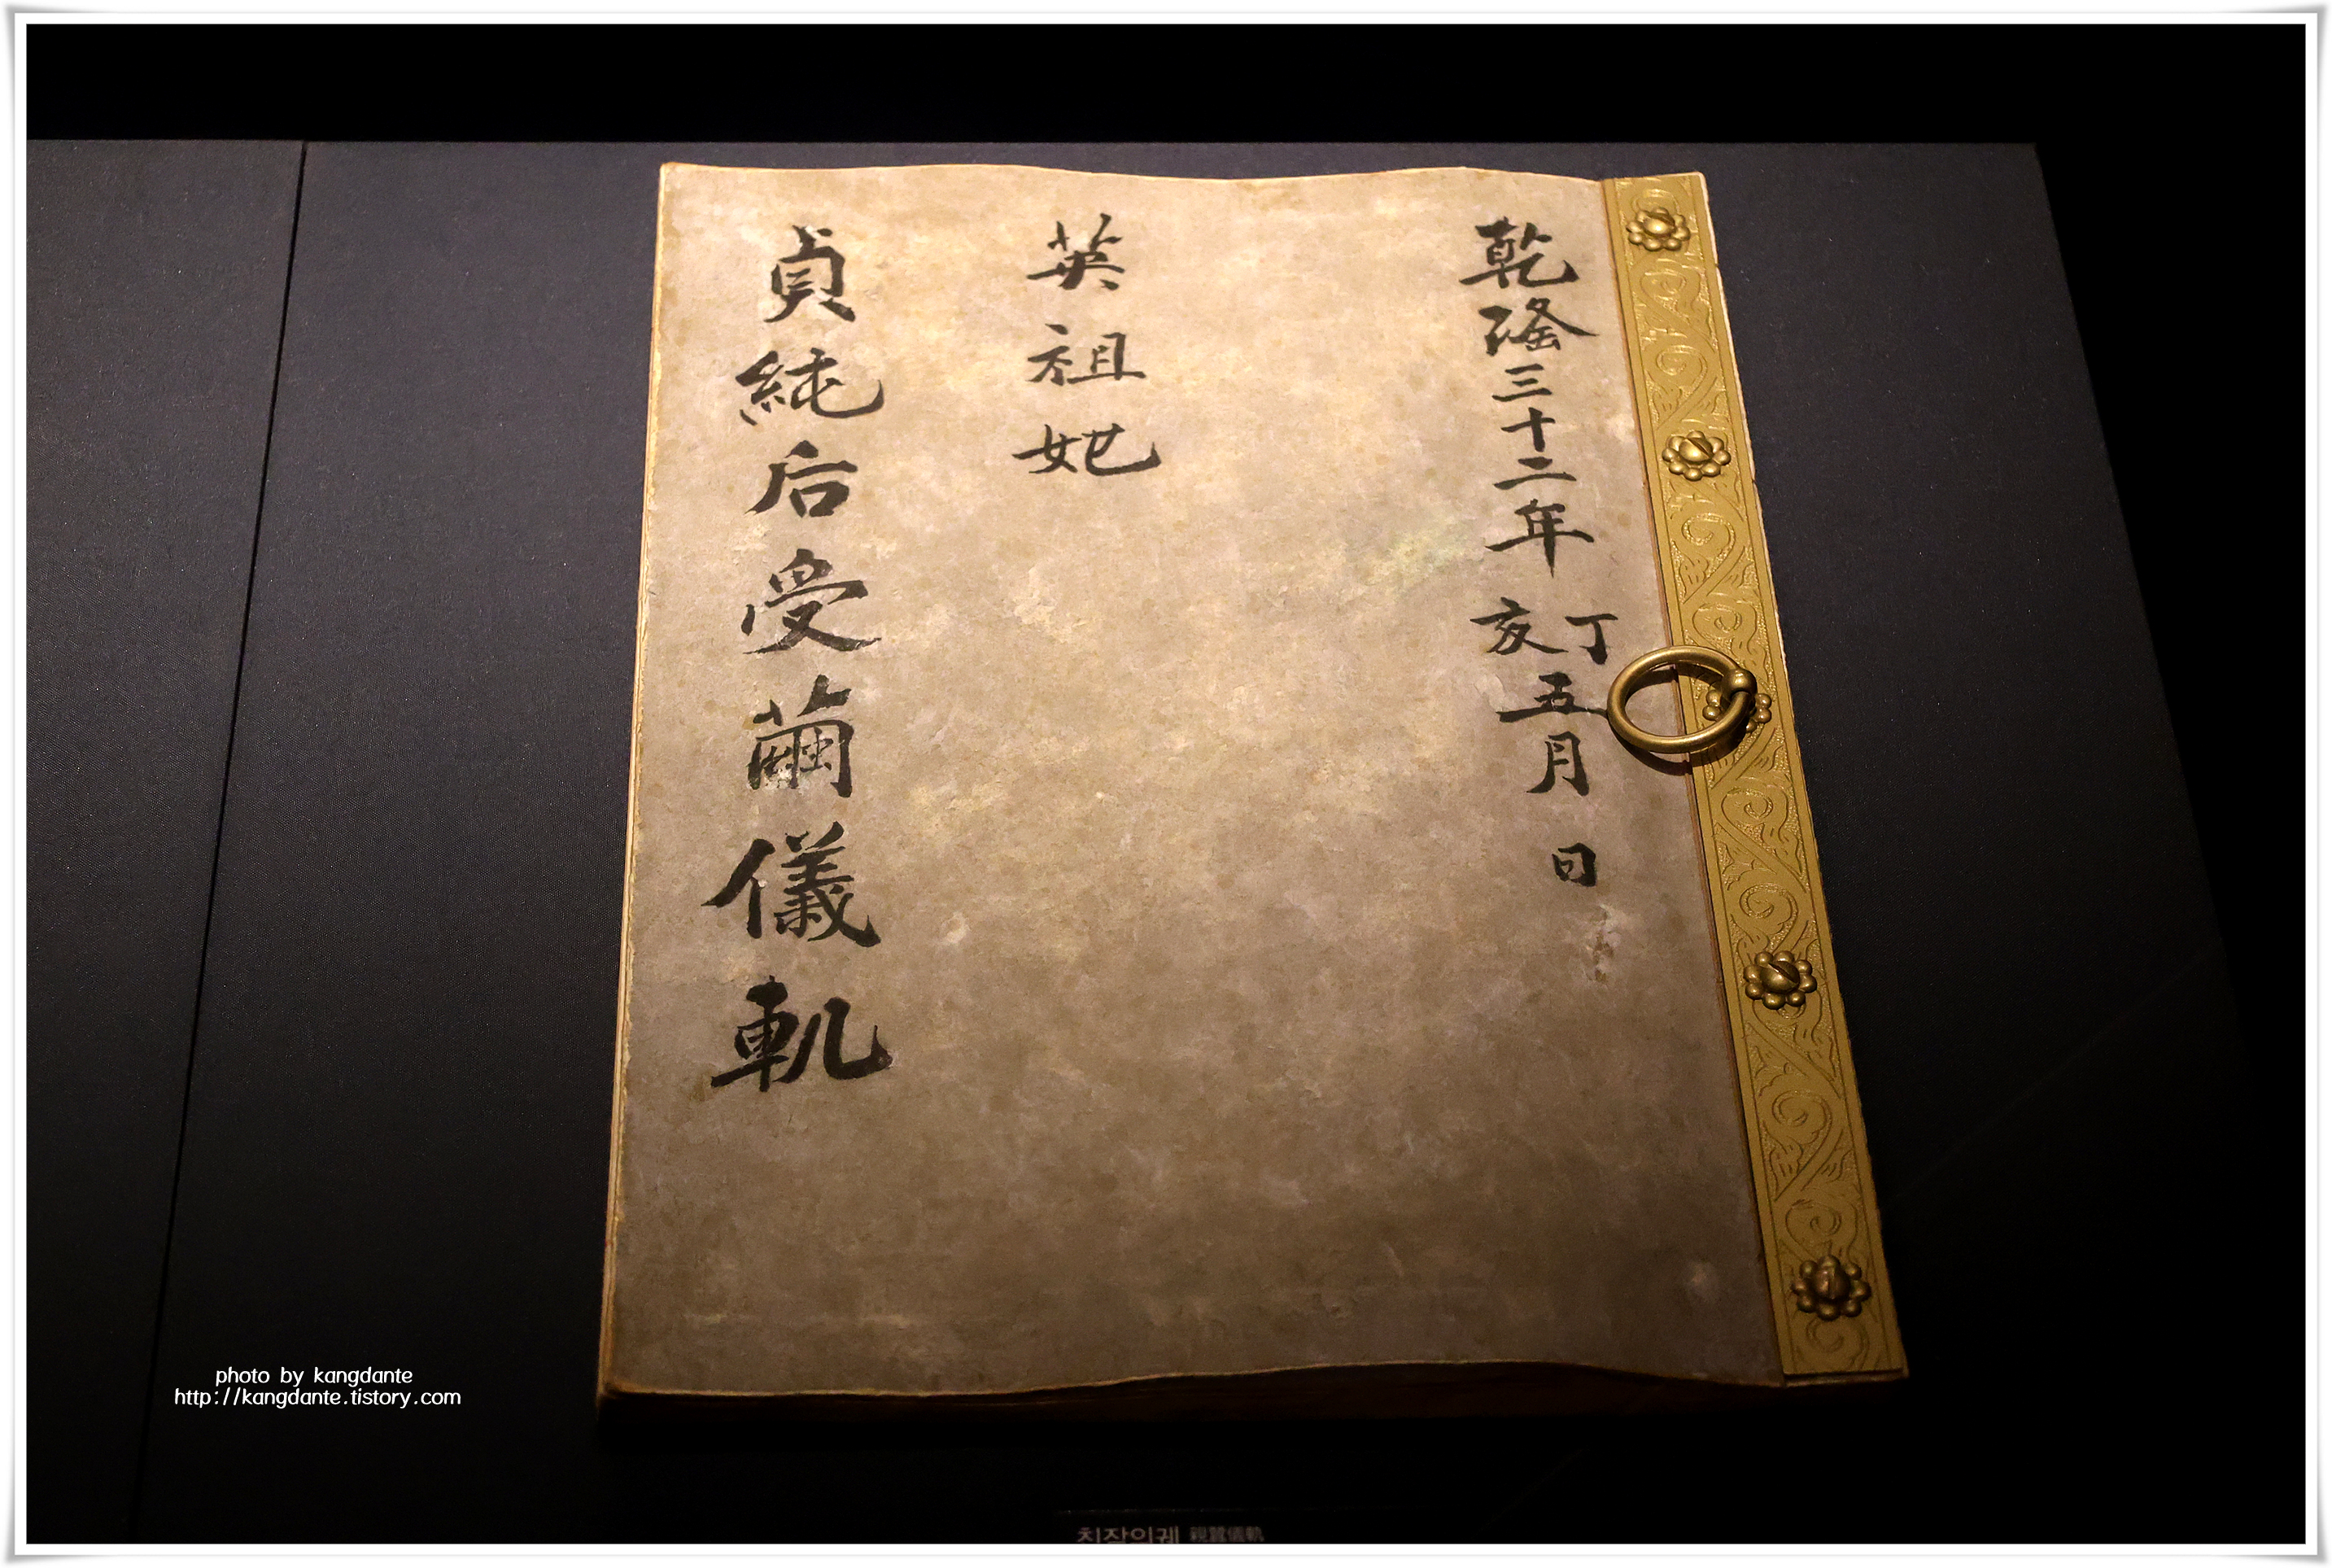 乾隆三十二年丁亥五月 日
英祖妃
貞純后受繭儀軌
photo by kangdante
http://kangdante.tistory.com
친잠의궤 親蠶儀軌